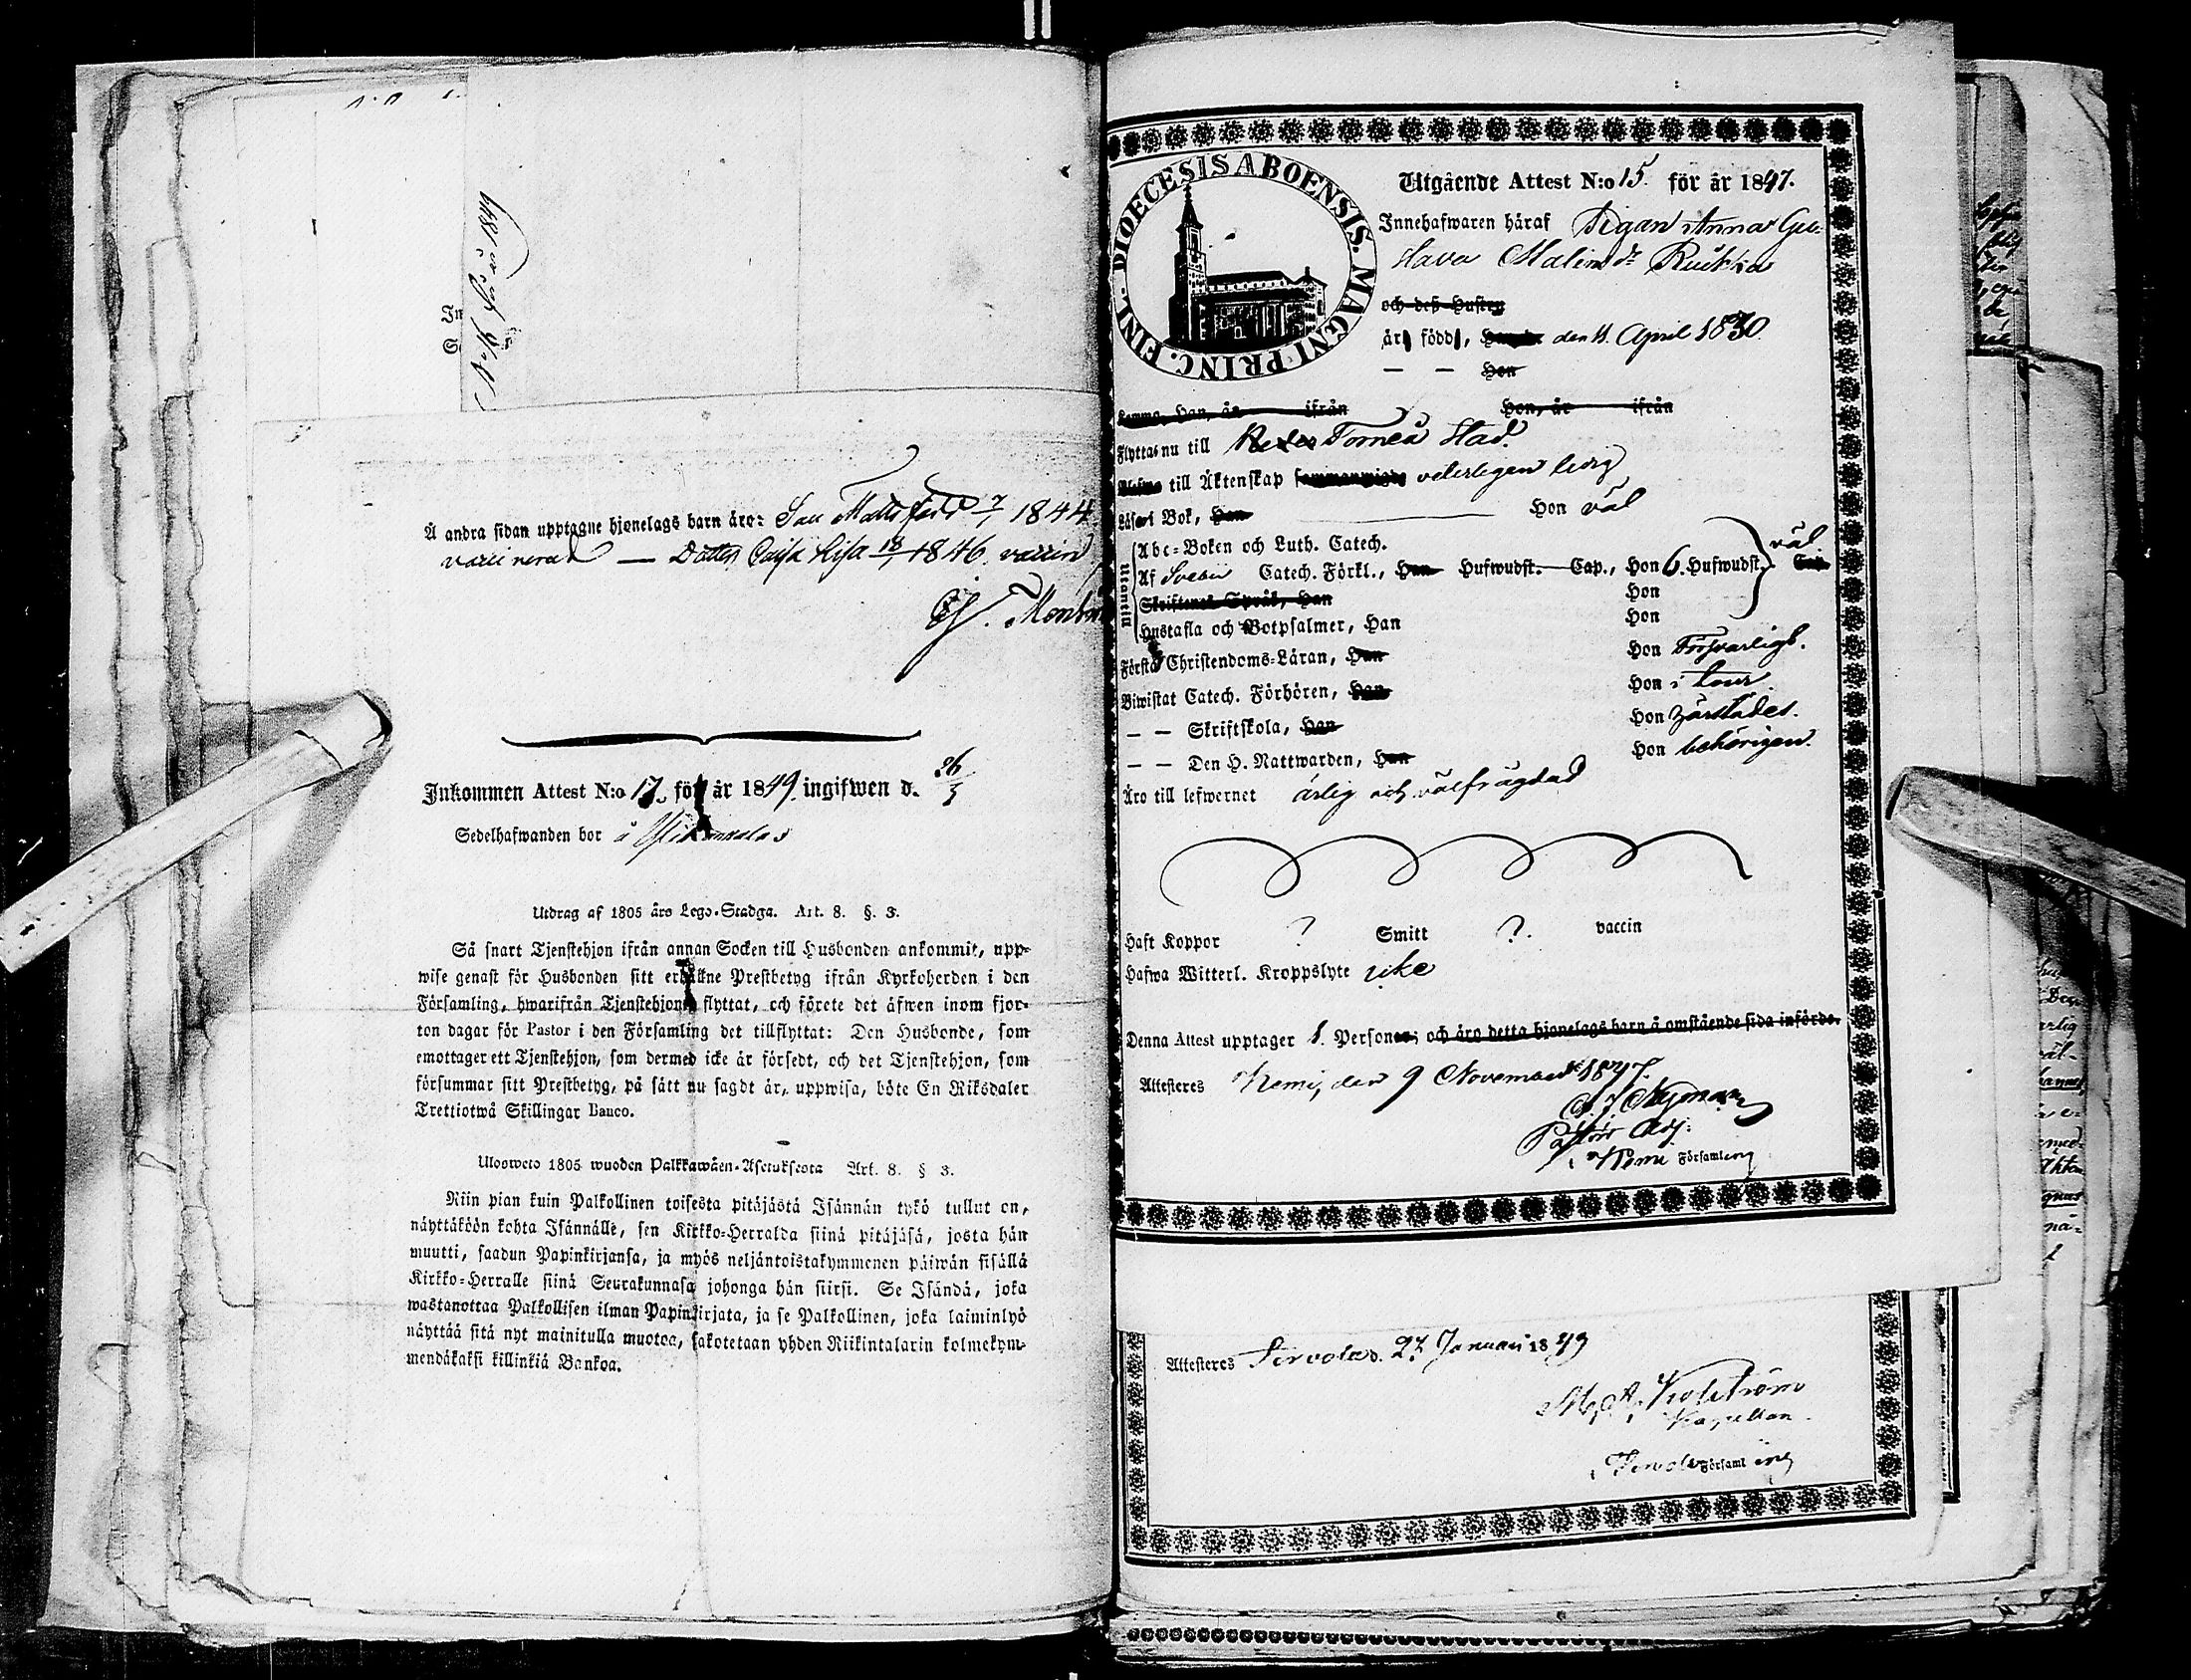 Å andra sidan upptagne hjonelags barn äro: Son Matts född 7/1 1844
vaccinerad — Dotter Caisa Lisa 18/1 1846. vaccin
Inkommen Attest N:o 17. för år 1849. ingifwen d. 26/3
Sedelhafwanden bor å
Utdrag af 1805 års Lego-Stadga. Art. 8. §. 3.
Så snart Tjenstehjon ifrån annan Socken till Husbonden ankommit, upp-
wise genast för Husbonden sitt erhållne Prestbetyg ifrån Kyrkoherden i den
Församling, hwarifrån Tjenstehjonet flyttat, och förete det äfwen inom fjor-
ton dagar för Pastor i den Församling det tillflyttat: Den Husbonde, som
emottager ett Tjenstehjon, som dermed icke är försedt, och det Tjenstehjon, som
försummar sitt Prestbetyg, på sätt nu sagdt är, uppwisa, böte En Riksdaler
Trettiotwå Skillingar Banco.
Ulosweto 1805 wuoden Palkkawäen-Asetuksesta Art. 8. § 3.
Niin pian kuin Palkollinen toisesta pitäjästä Isännän tykö tullut on,
näyttäköön kohta Isännälle, sen Kirkko-Herralda siinä pitäjäsä, josta hän
muutti, saadun Papinkirjansa, ja myös neljäntoistakymmenen päiwän sisällä
Kirkko-Herralle siinä Seurakunnasa johonga hän siirsi. Se Isändä, joka
wastanottaa Palkollisen ilman Papinkirjata, ja se Palkollinen, joka laiminlyö
näyttää sitä nyt mainitulla muotoa, sakotetaan yhden Riikintalarin kolmekym-
mendäkaksi killinkiä Bankoa.
DIOECESIS ABOENSIS. MAGNI PRINC. FINL.
Utgående Attest N:o 15. för år 1847.
Innehafwaren häraf Pigan Anna Gu-
stava Malin dr Ruikka
och deß Hustru
är född, den 11. April 1830.
— — Hon
Komma, Han, år ifrån Hon, år ifrån
Flyttas nu till Torneå Stad.
till Äktenskap veterligen ledig
Läser i Bok, Han Hon väl
Utantill
Abc-Boken och Luth. Catech.
Af Svebii Catech. Förkl., Han Hufwudst. Cap., Hon 6. Hufwudst. Cap. väl
Skriftenes Språk, Han Hon
Hustafla och Botpsalmer, Han Hon
Första Christendoms-Läran, Han Hon Försvarligt.
Biwistat Catech. Förhören, Han Hon
— — Skriftskola, Han Hon
— — Den H. Nattwarden, Han Hon behörigen.
Äro till lefwernet ärlig och välfrägdad
Haft Koppor ? Smitt ?. vaccin
Hafwa Witterl. Kroppslyte icke
Denna Attest upptager 1. Personer; och äro detta hjonelags barn å omstående sida införde.
Attesteras Kemi, den 9 November 1847.
Nyman
Pastors Adj.
i Kemi Församling
Attesteras Tervola d. 27 Januari 1849
Kapellan.
i Tervola Församling